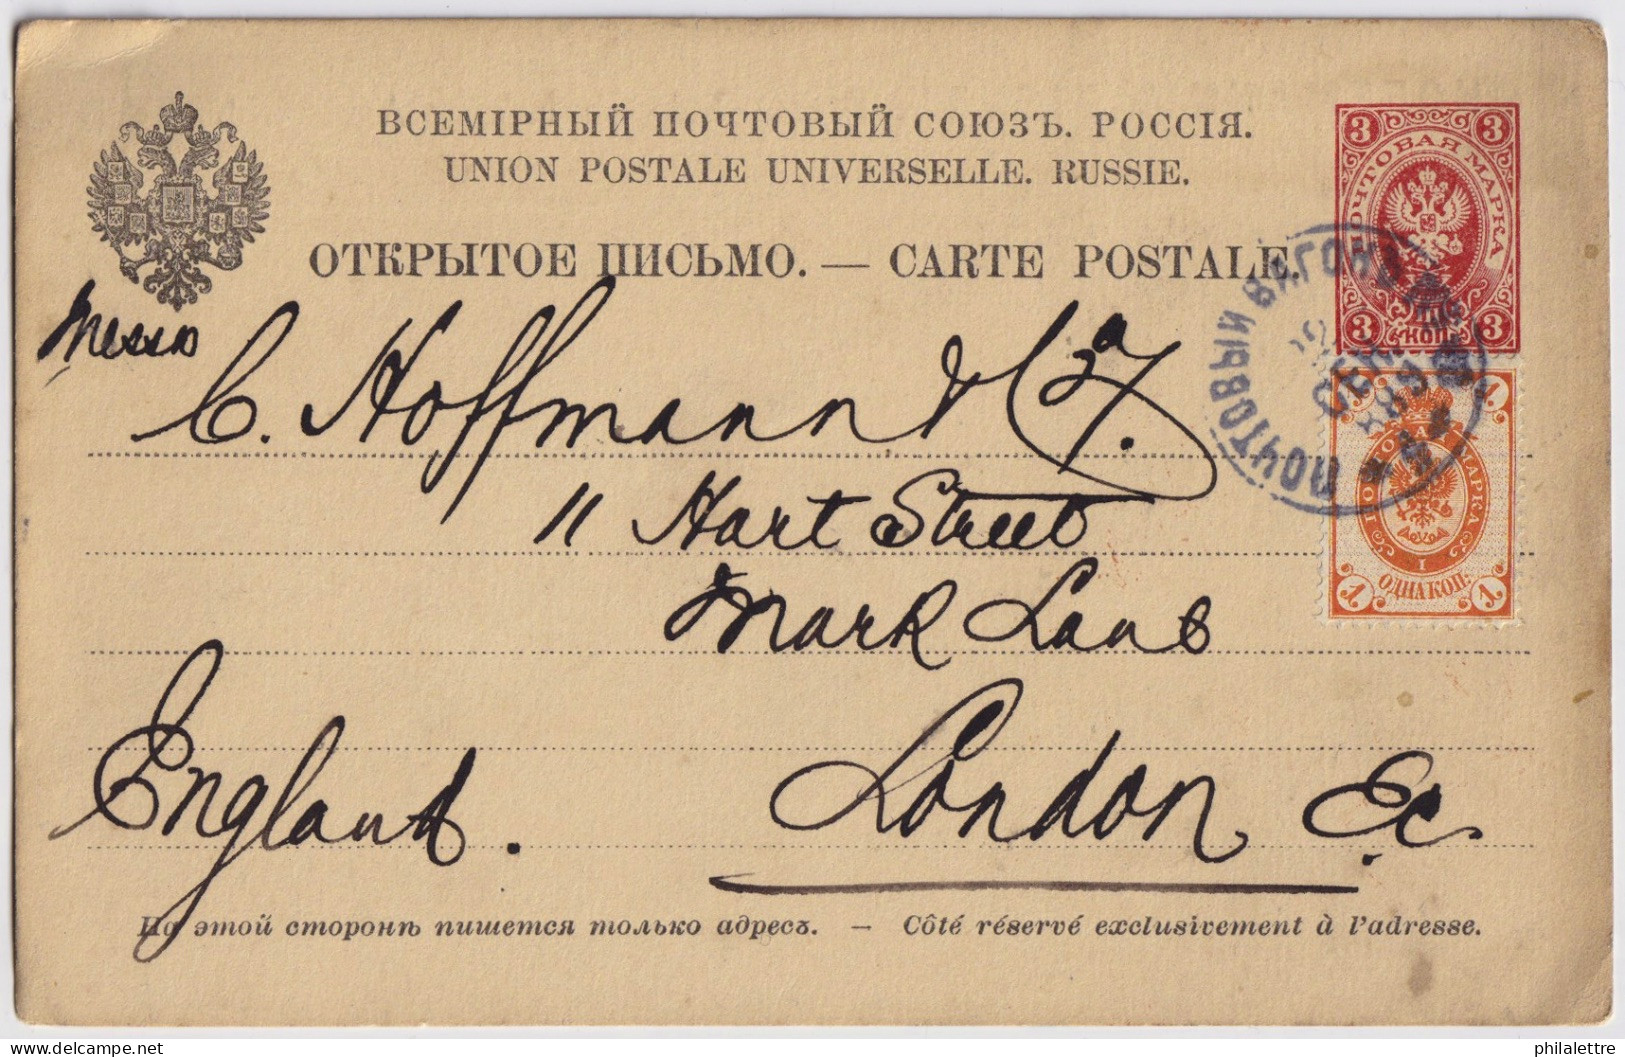 ВСЕМІРНЫЙ ПОЧТОВЫЙ СОЮЗЪ. РОССІЯ.
UNION POSTALE UNIVERSELLE. RUSSIE.
ОТКРЫТОЕ ПИСЬМО. — CARTE POSTALE.
3 3
ПОЧТОВАЯ МАРКА
3 КОП. 3
ПОЧТОВЫЙ ВАГОНЪ
Messrs
C. Hoffmann & Co.
11 Hart Street
Mark Lane
London E.C.
England.
1 1
ПОЧТОВАЯ МАРКА
1
1 ОДНА КОП. 1
На этой сторонѣ пишется только адресъ. — Côté réservé exclusivement à l'adresse.
philalettre